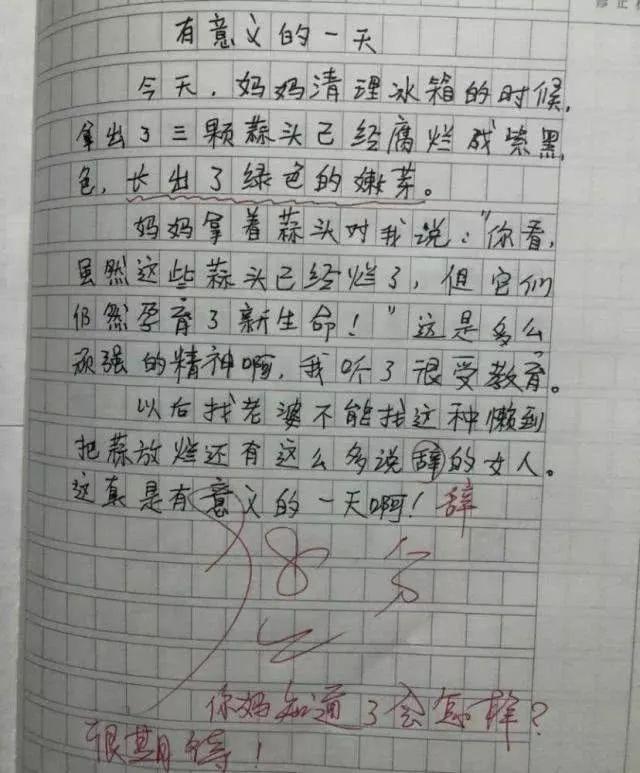 有意义的一天
今天，妈妈清理冰箱的时候，
拿出了三颗蒜头已经腐烂成紫黑
色，长出了绿色的嫩芽。
妈妈拿着蒜头对我说：“你看，
虽然这些蒜头已经烂了，但它们
仍然孕育了新生命！”这是多么
顽强的精神啊，我听了很受教育。
以后找老婆不能找这种懒到
把蒜放烂还有这么多说辞的女人。
这真是有意义的一天啊！辞
你妈知道了会怎样？
很期待！